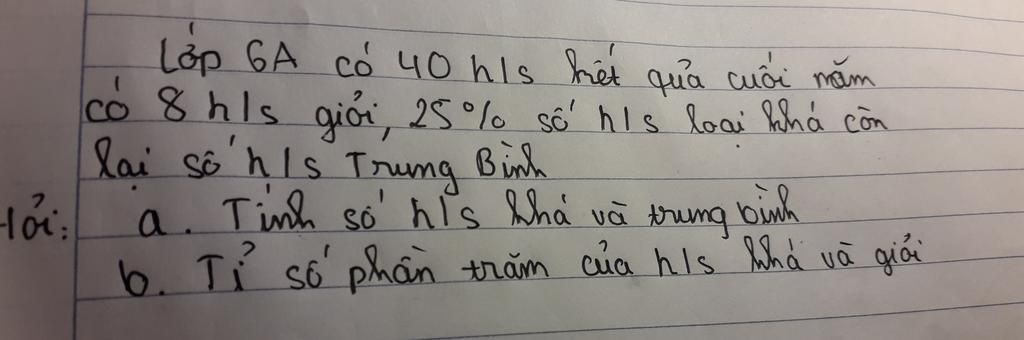 Lớp 6A có 40 h/s kết quả cuối năm
có 8 h/s giỏi, 25% số h/s loại khá còn
lại số h/s Trung Bình
Hỏi: a. Tính số h/s khá và trung bình
b. Tỉ số phần trăm của h/s khá và giỏi